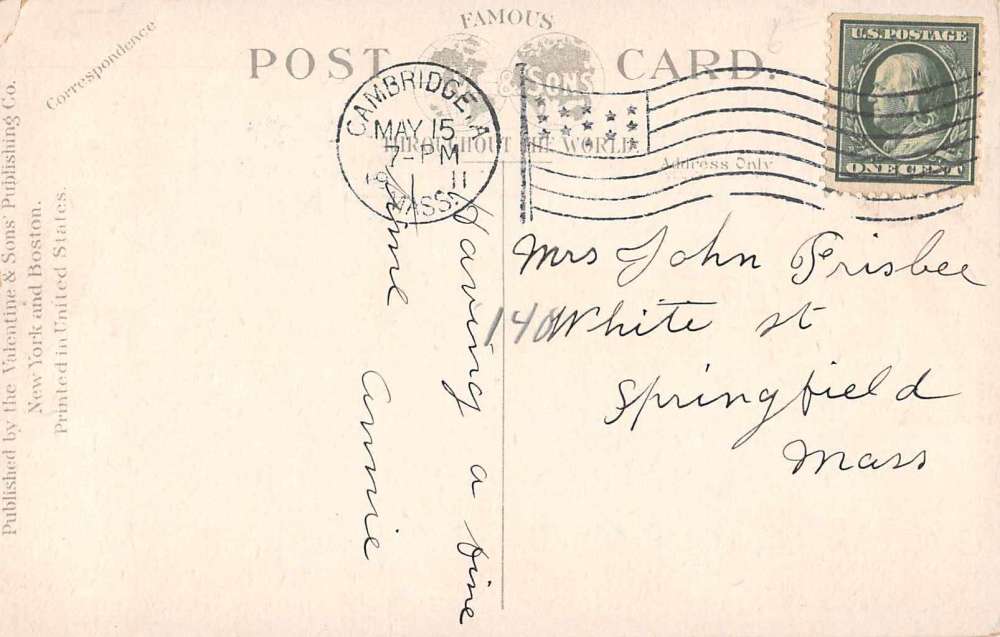 FAMOUS
POST CARD.
& SONS
THROUGHOUT THE WORLD
Correspondence
Address Only
Published by the Valentine & Sons' Publishing Co.
New York and Boston.
Printed in United States.
CAMBRIDGE, A
MAY 15
7-PM
11
MASS.
U.S. POSTAGE
ONE CENT
Having a fine
time
Annie
Mrs John Frisbee
140 White st
Springfield
Mass